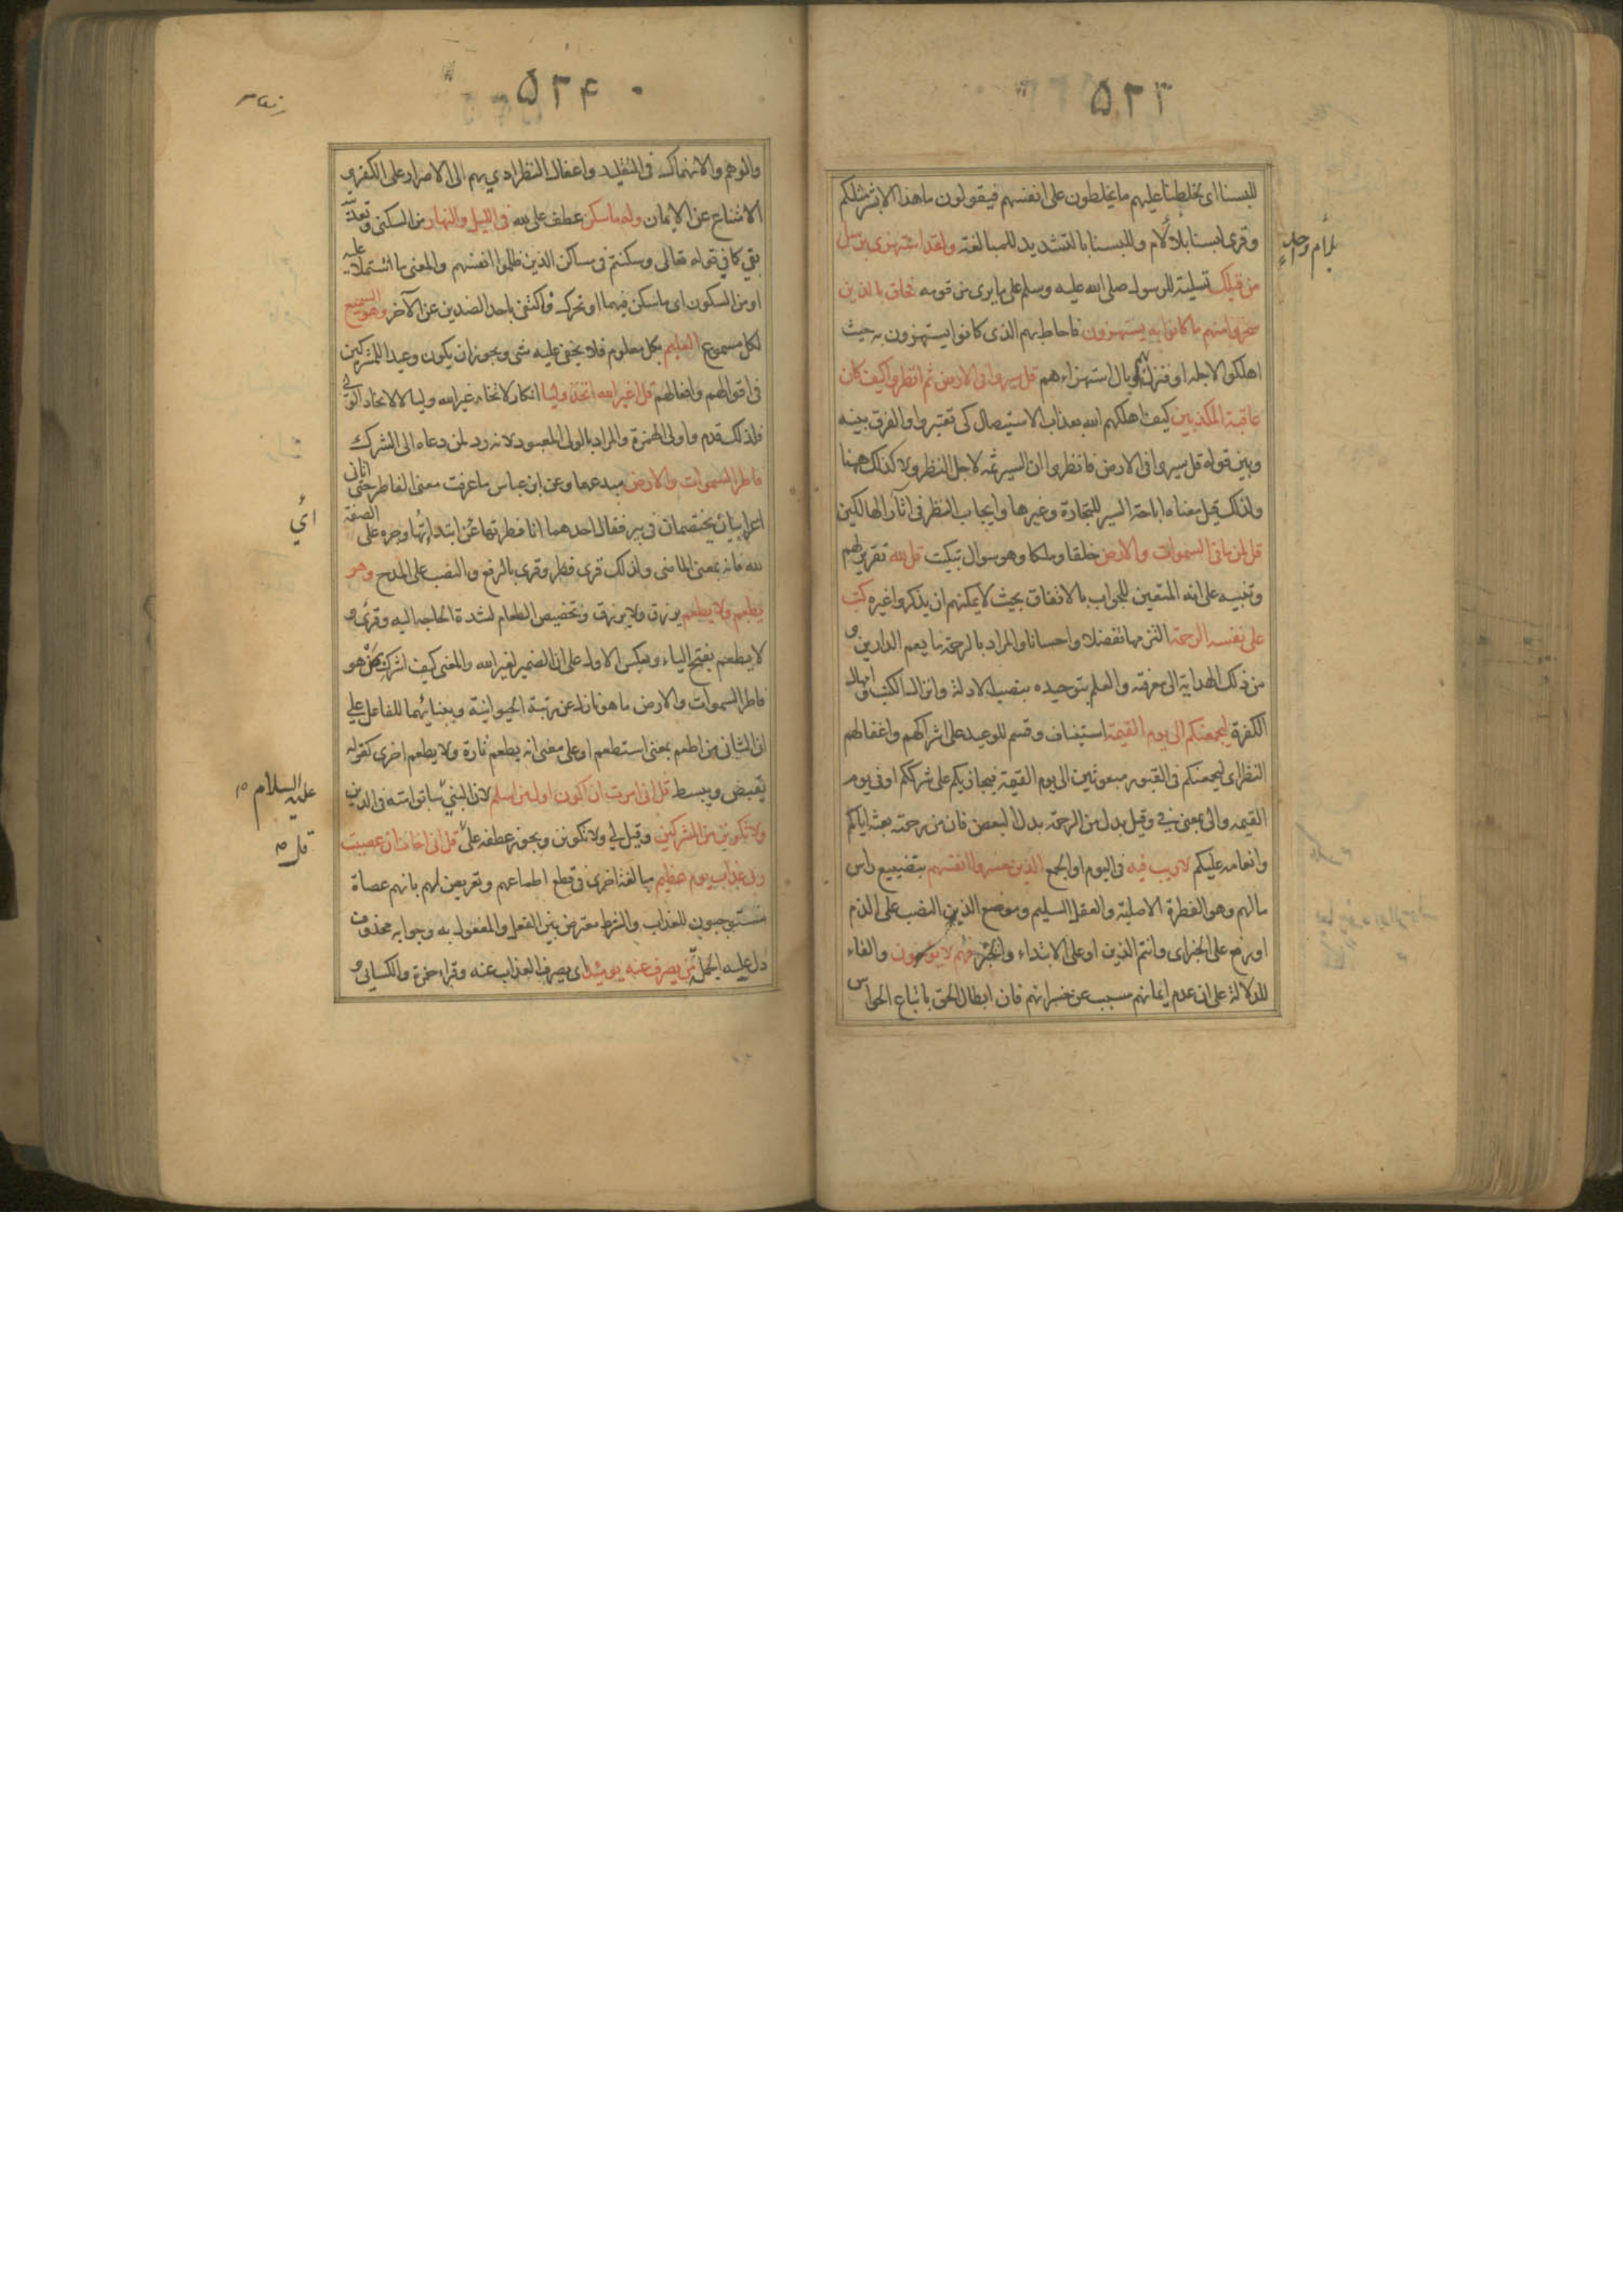 ۵۲۳
للبسنا اى لخلطنا عليهم ما يخلطون على انفسهم فيقولون ما هذا الا بشر مثلكم
وقرى لبسنا بلام وللبسنا بالتشديد للمبالغة ولقد استهزى برسل
بلام واحدة
من قبلك تسلية للرسول صلى الله عليه وسلم على ما يرى من قومه فحاق بالذين
سخروا منهم ما كانوا به يستهزون فاحاط بهم الذى كانوا يستهزون به حيث
اهلكوا لاجله او فنزل بهم وبال استهزاءهم قل سيروا فى الارض ثم انظروا كيف كان
عاقبة المكذبين كيف اهلكهم الله بعذاب الاستيصال كى تعتبروا والفرق بينه
وبين قوله قل سيروا فى الارض فانظروا ان السير ثمه لاجل النظر ولا كذلك ههنا
ولذلك قيل معناه اباحة السير للتجارة وغيرها وايجاب النظر فى آثار الهالكين
قل لمن ما فى السموات والارض خلقا وملكا وهو سوال تبكيت قل لله تقرير لهم
وتنبيه على انه المتعين للجواب بالاتفاق بحيث لا يمكنهم ان يذكروا غيره كتب
على نفسه الرحمة التزمها تفضلا واحسانا والمراد بالرحمة ما يعم الدارين و
من ذلك الهداية الى معرفته والعلم بتوحيده بنصب الادلة وانزال الكتب وامهال
الكفرة ليجمعنكم الى يوم القيمة استيناف وقسم للوعيد على اشراكهم واغفالهم
النظر اى ليجمعنكم فى القبور مبعوثين الى يوم القيمة فيجازيكم على شرككم او فى يوم
القيمه والى بمعنى فى وقيل بدل من الرحمة بدل البعض فان من رحمته بعثه اياكم
وانعامه عليكم لا ريب فيه فى اليوم او الجمع الذين خسروا انفسهم بتضييع راس
مالهم وهو الفطرة الاصلية والعقل السليم وموضع الذين النصب على الذم
او رفع على الخبر اى وانتم الذين او على الابتداء والخبر فهم لا يومنون والفاء
للدلالة على ان عدم ايمانهم مسبب عن خسرانهم فان ابطال الحق باتباع الحواس
۵۲۴
والوهم والانهماك فى التقليد واغفال النظر ادى بهم الى الاصرار على الكفر و
الامتناع عن الايمان وله ما سكن عطف على لله فى الليل والنهار من السكنى وتعديته
بفى كما فى قوله تعالى وسكنتم فى مساكن الذين ظلموا انفسهم والمعنى ما اشتملا عليه
او من السكون اى ما سكن فيهما او تحرك فاكتفى باحد الضدين عن الآخر وهو السميع
لكل مسموع العليم بكل معلوم فلا يخفى عليه شى ويجوز ان يكون وعيدا للمشركين
فى اقوالهم وافعالهم قل اغير الله اتخذ وليا انكار لاتخاذ غير الله وليا لا لاتخاذ الولى
فلذلك قدم واولى الهمزة والمراد بالولى المعبود لانه رد لمن دعاه الى الشرك
فاطر السموات والارض مبدعهما وعن ابن عباس ما عرفت معنى الفاطر حتى اتانى
اعرابيان يختصمان فى بير فقال احدهما انا فطرتها اى ابتداتها وجره على الصفة
لله فانه بمعنى الماضى ولذلك قرى فطر وقرى بالرفع والنصب على المدح وهو
يطعم ولا يطعم يرزق ولا يرزق وتخصيص الطعام لشدة الحاجة اليه وقرى و
لا يطعم بفتح الياء وبعكس الاول على ان الضمير لغير الله والمعنى كيف اشرك بمن هو
فاطر السموات والارض ما هو نازل عن رتبة الحيوانية وببنائهما للفاعل على
ان الثانى من اطعم بمعنى استطعم او على معنى انه يطعم تارة ولا يطعم اخرى كقوله
يقبض ويبسط قل انى امرت ان اكون اول من اسلم لان النبى سابق امته فى الدين
عليه السلام
ولا تكونن من المشركين وقيل لى ولا تكونن ويجوز عطفه على قل انى اخاف ان عصيت
قل
ربى عذاب يوم عظيم مبالغة اخرى فى قطع اطماعهم وتعريض لهم بانهم عصاة
مستوجبون للعذاب والشرط معترض بين الفعل والمفعول به وجوابه محذوف
دل عليه الجملة من يصرف عنه يومئذ اى يصرف العذاب عنه وقرا حمزة والكسائى و